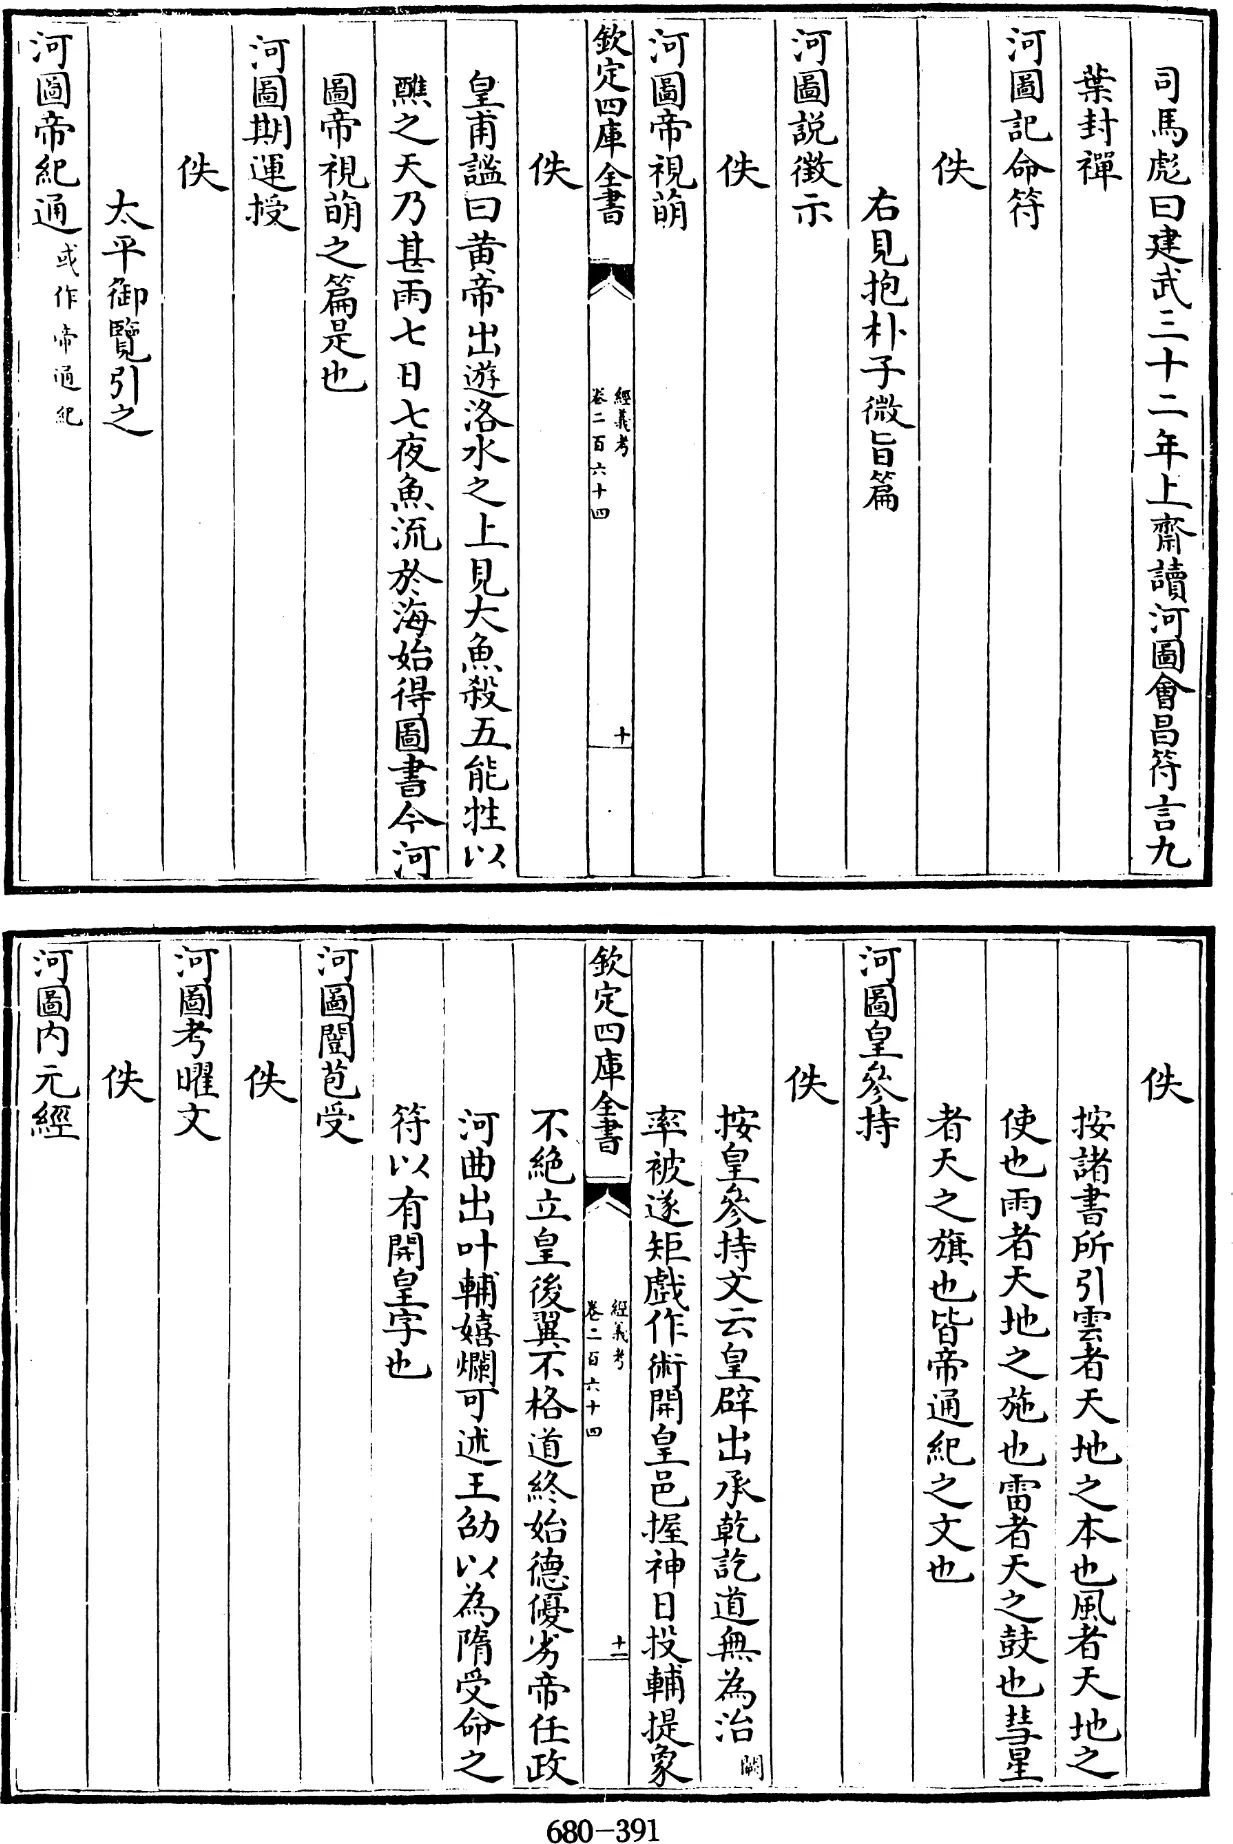 司馬彪曰建武三十二年上齋讀河圖會昌符言九
葉封禪
河圖記命符
佚
右見抱朴子微旨篇
河圖說徵示
佚
河圖帝視萌
欽定四庫全書
經義考
卷二百六十四
十
佚
皇甫謐曰黄帝出遊洛水之上見大魚殺五能牲以
醮之天乃甚雨七日七夜魚流於海始得圖書今河
圖帝視萌之篇是也
河圖期運授
佚
太平御覽引之
河圖帝紀通或作帝通紀
佚
按諸書所引雲者天地之本也風者天地之
使也雨者天地之施也雷者天之鼓也彗星
者天之旗也皆帝通紀之文也
河圖皇參持
佚
按皇參持文云皇辟出承乾訖道無為治闕
率被遂矩戲作術開皇邑握神日投輔提象
欽定四庫全書
經義考
卷二百六十四
十一
不絶立皇後翼不格道終始德優劣帝任政
河曲出叶輔嬉爛可述王劭以為隋受命之
符以有開皇字也
河圖闓苞受
佚
河圖考曜文
佚
河圖内元經
680-391